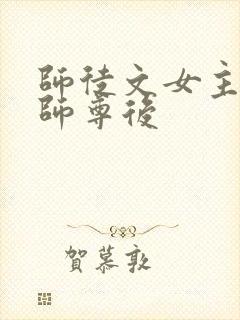 師徒文女主
師尊後
賀慕敦